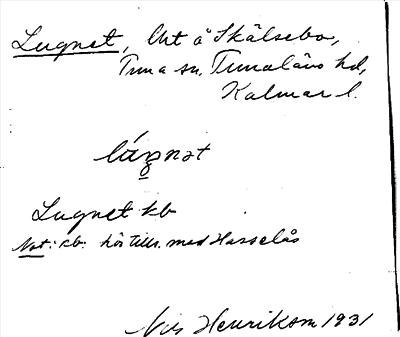 Lugnet, Utt å Skälsebo,
Tuna sn, Tunaläns hd,
Kalmar l.
lúgnət
Lugnet kb
Not: kb. hör tills. med Hasselås
Nils Henrikson 1931